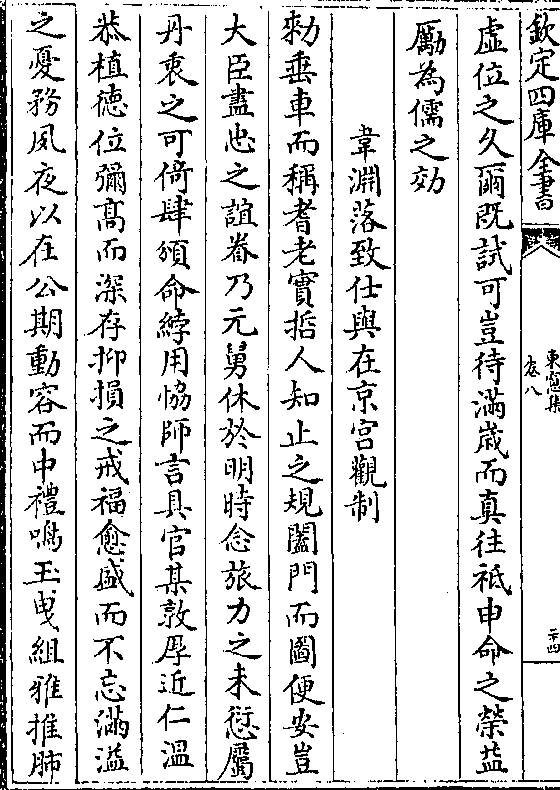 欽定四庫全書
東窓集
卷八
二十四
虚位之久爾既試可豈待滿歲而真往祗申命之榮益
勵為儒之効
韋淵落致仕與在京宫觀制
勑垂車而稱耆老實哲人知止之規闔門而圖便安豈
大臣盡忠之誼眷乃元舅休於明時念旅力之未愆屬
丹衷之可倚肆頒命綍用恊師言具官某敦厚近仁温
恭植德位彌髙而深存抑損之戒福愈盛而不忘滿溢
之憂務夙夜以在公期動容而中禮鳴玉曵組雅推肺